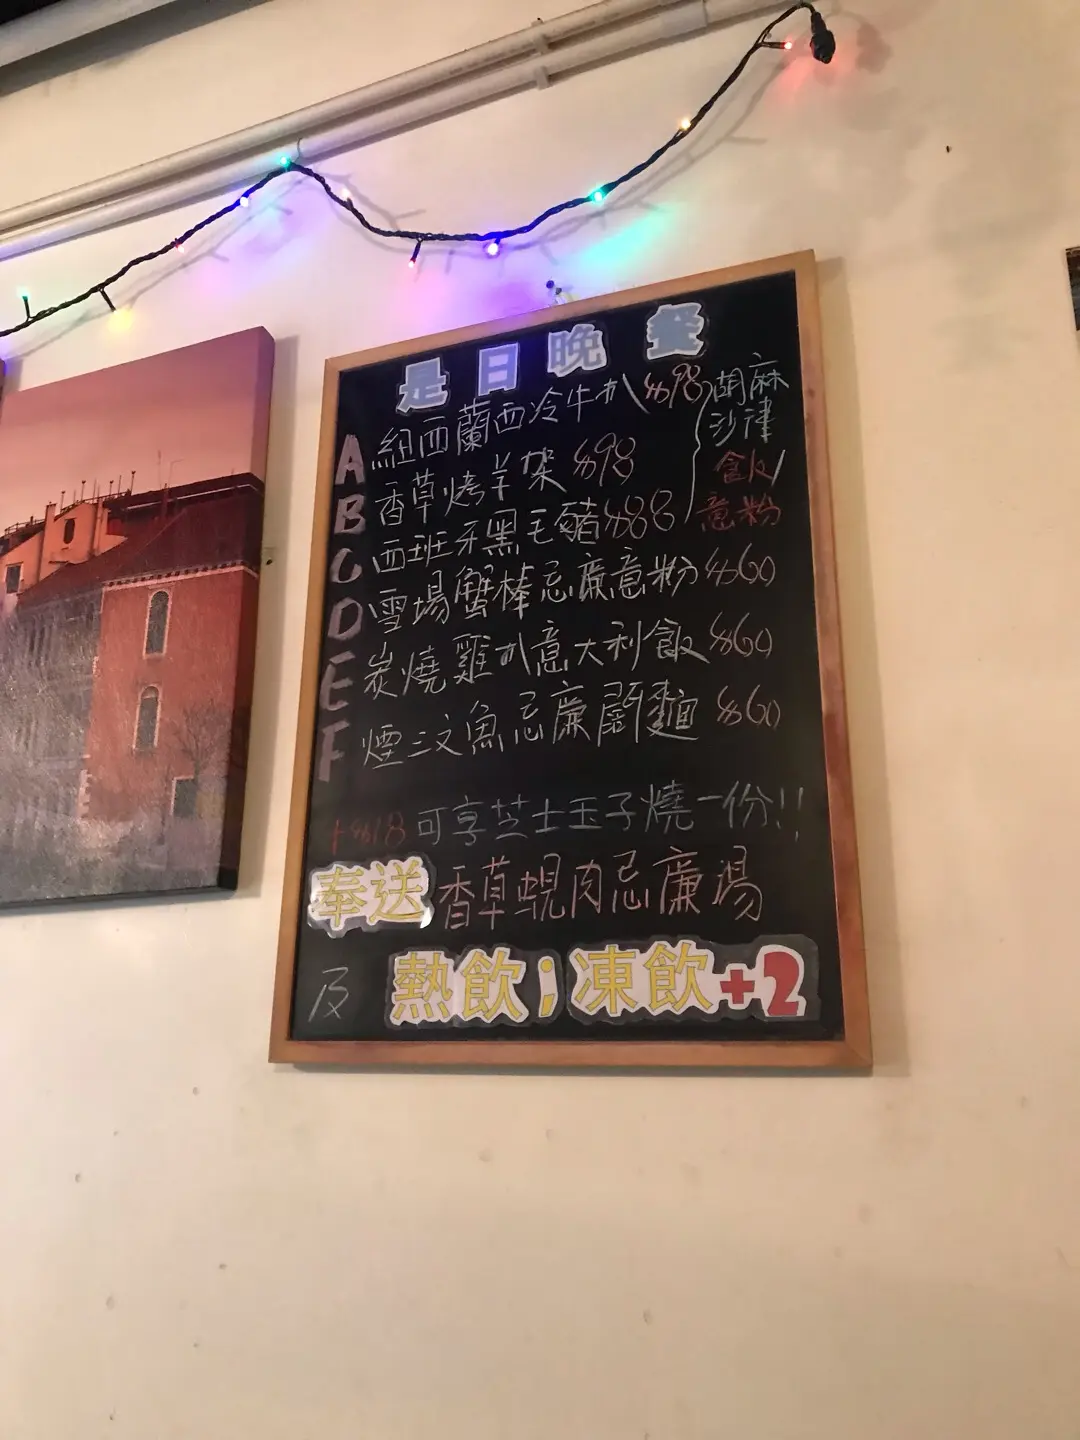 是日晚餐
A 紐西蘭西冷牛扒 $98
B 香草烤羊架 $98
C 西班牙黑毛豬 $88
胡麻
沙律
飯/
意粉
D 雪場蟹棒忌廉意粉 $60
E 炭燒雞扒意大利飯 $60
F 煙三文魚忌廉闊麵 $60
+$18 可享芝士玉子燒一份!!
奉送 香草蜆肉忌廉湯
及 熱飲;凍飲+2